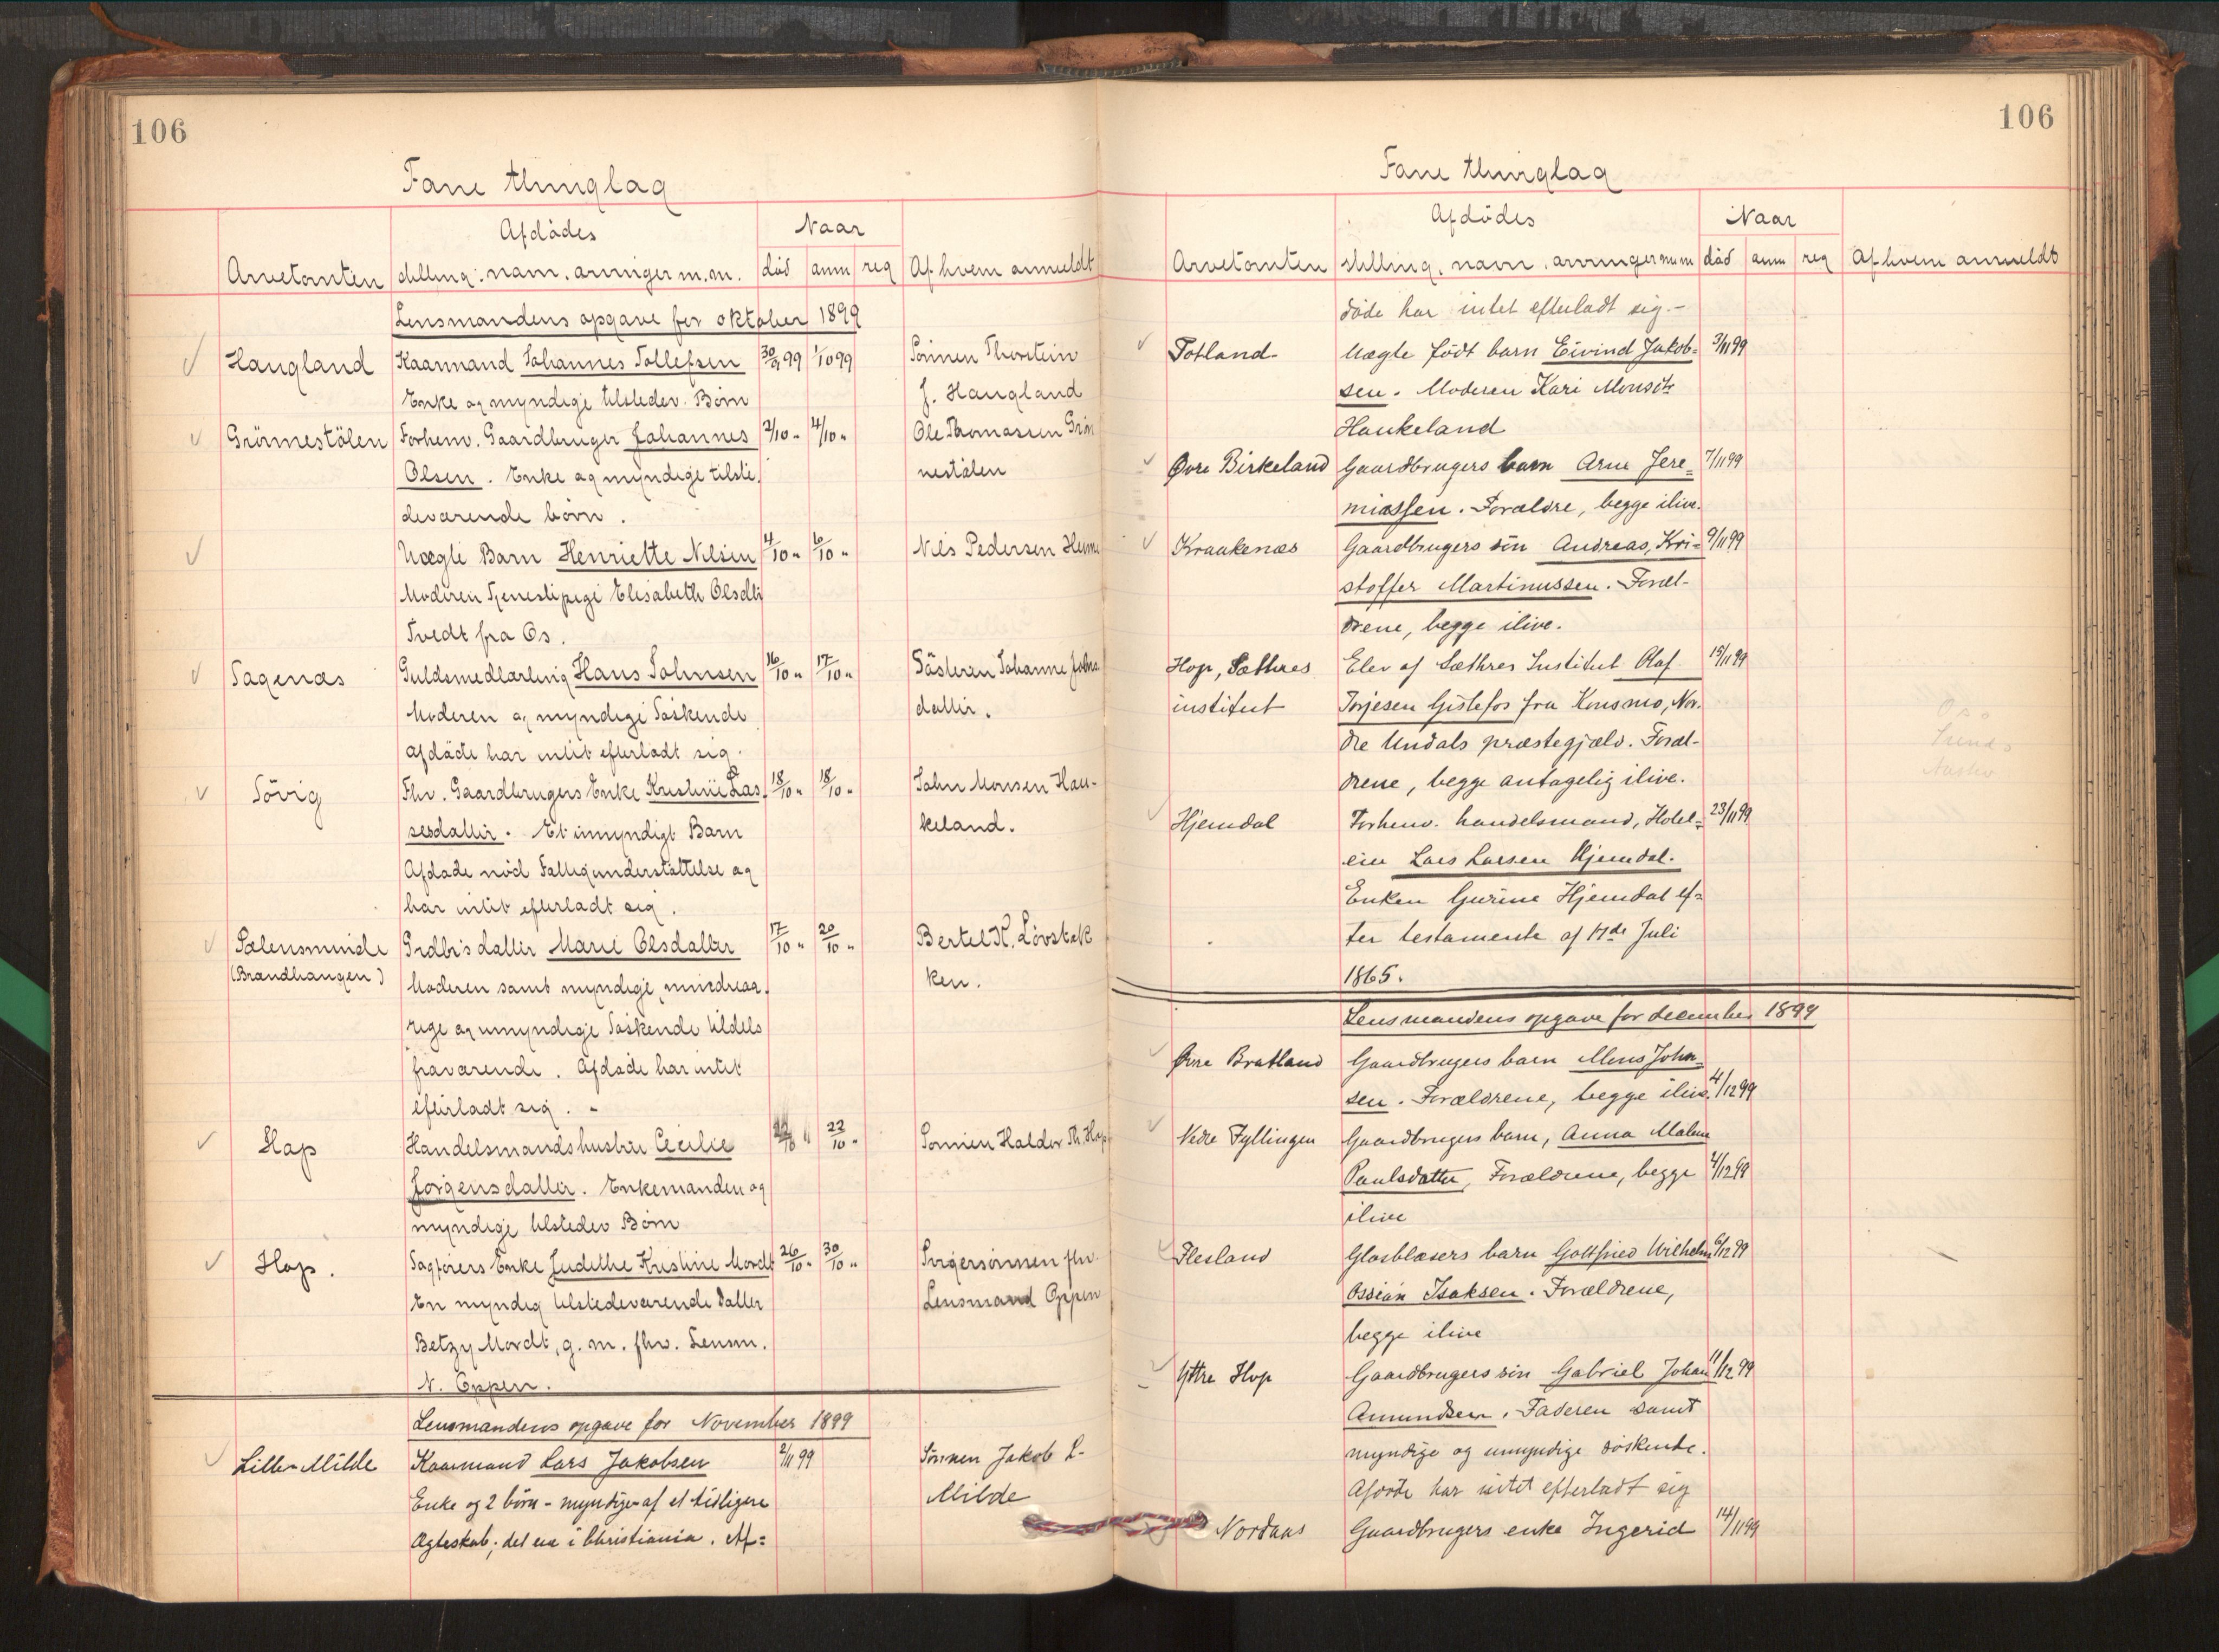 106
Fane thinglag
Afdødes
Naar
Arvetomten stilling. nam. arvinger m.m. død anm reg Af hvem anmeldt
Lensmandens opgave for oktober 1899
Haugland Kaarmand Johannes Tollefsen 30/9 99 1/10 99 Sønnen Thorstein
Enke og myndige tilstedev. Børn J. Haugland
Grønnestølen Forhenv. Gaardbruger Johannes 2/10 " 4/10 " Ole Thomassen Grøn
Olsen. Enke og myndige tilste, nestølen
deværende børn.
Uægte Barn Henriette Nilsen 4/10 " 6/10 " Nils Pedersen
Moderen Tjenestepige Elisabeth Olsdtr
Tvedt fra Os.
Tagenæs Guldsmedlærling Hans Johnsen 16/10 " 17/10 " Søsteren Johanne Johns
Moderen og myndige Søskende datter.
afdøde har intet efterladt sig.
Søvig Fhv. Gaardbrugers Enke Kristine Las 18/10 " 18/10 " John Monsen Hau-
sesdatter. Et umyndigt Barn keland.
Afdøde nød Fattigunderstøttelse og
har intet efterladt sig.
Sælensminde Grdbrs datter Marie Olsdatter 17/10 " 20/10 " Bertel K. Løvstak
(Brandhaugen) Moderen samt myndige, mindreaa. ken.
rige og umyndige Søskende tildels
fraværende. Afdøde har intet
efterladt sig. -
Hop Handelsmandshustru Cecilie 22/10 " Sønnen Haldor Th. Hop
Jørgensdatter. Enkemanden og
myndige tilstedev Børn
Hop. Sagførers Enke Judithe Kristine Mordt 26/10 " 30/10 " Svigersønnen fhv.
En myndig tilstedeværende Datter Lensmand Oppen
Betzy Mordt, g. m. fhv. Lensm.
N. Oppen.
Lensmandens opgave for November 1899
Lille-Milde Kaarmand Lars Jakobsen 2/11 99 Sønnen Jakob L-
Enke og 2 børn - myndige af et tidligere Milde
Ægteskab; det ene i Christiania. Af=
106
Fane thinglag
Afdødes
Naar
Arvetomten stilling, navn, arvinger m m død anm reg Af hvem anmeldt
døde har intet efterladt sig.-
Totland- Uægte født barn Eivind Jakob= 3/11 99
sen. Moderen Kari Monsdtr
Haukeland
Øvre Birkeland Gaardbrugers barn Arne Jere= 7/11 99
miassen. Forældre, begge ilive.
Kraakenæs Gaardbrugers søn Andreas, Kri= 9/11 99
stoffer Martinussen. Foræl-
drene, begge ilive.
Hop, Sæthres Elev af Sæthres Institut Olaf 15/11 99
institut Torjesen Gislefos fra Konsmo, Nor.
dre Undals præstegjæld. Foræl-
drene, begge antagelig ilive.
Hjemdal Forhenv. handelsmand, Hotel= 23/11 99
eier Lars Larsen Hjemdal.
Enken Gurine Hjemdal ef=
ter testamente af 17de Juli
1865.
Lensmandens opgave for december 1899
Øvre Bratland Gaardbrugers barn Mons John=
sen. Forældrene, begge ilive. 4/12 99
Nedre Fyllingen Gaardbrugers barn, Anna Malene
Paulsdatter, Forældrene, begge 4/12 99
ilive
Flesland Glasblæsers barn Gottfried Wilhelm 6/12 99
Ossian Isaksen. Forældrene,
begge ilive
Yttre Hop Gaardbrugers søn Gabriel Johan 11/12 99
Amundsen. Faderen samt
myndige og umyndige søskende.
Afdøde har intet efterladt sig
Nordaas Gaardbrugers enke Ingerid 14/11 99